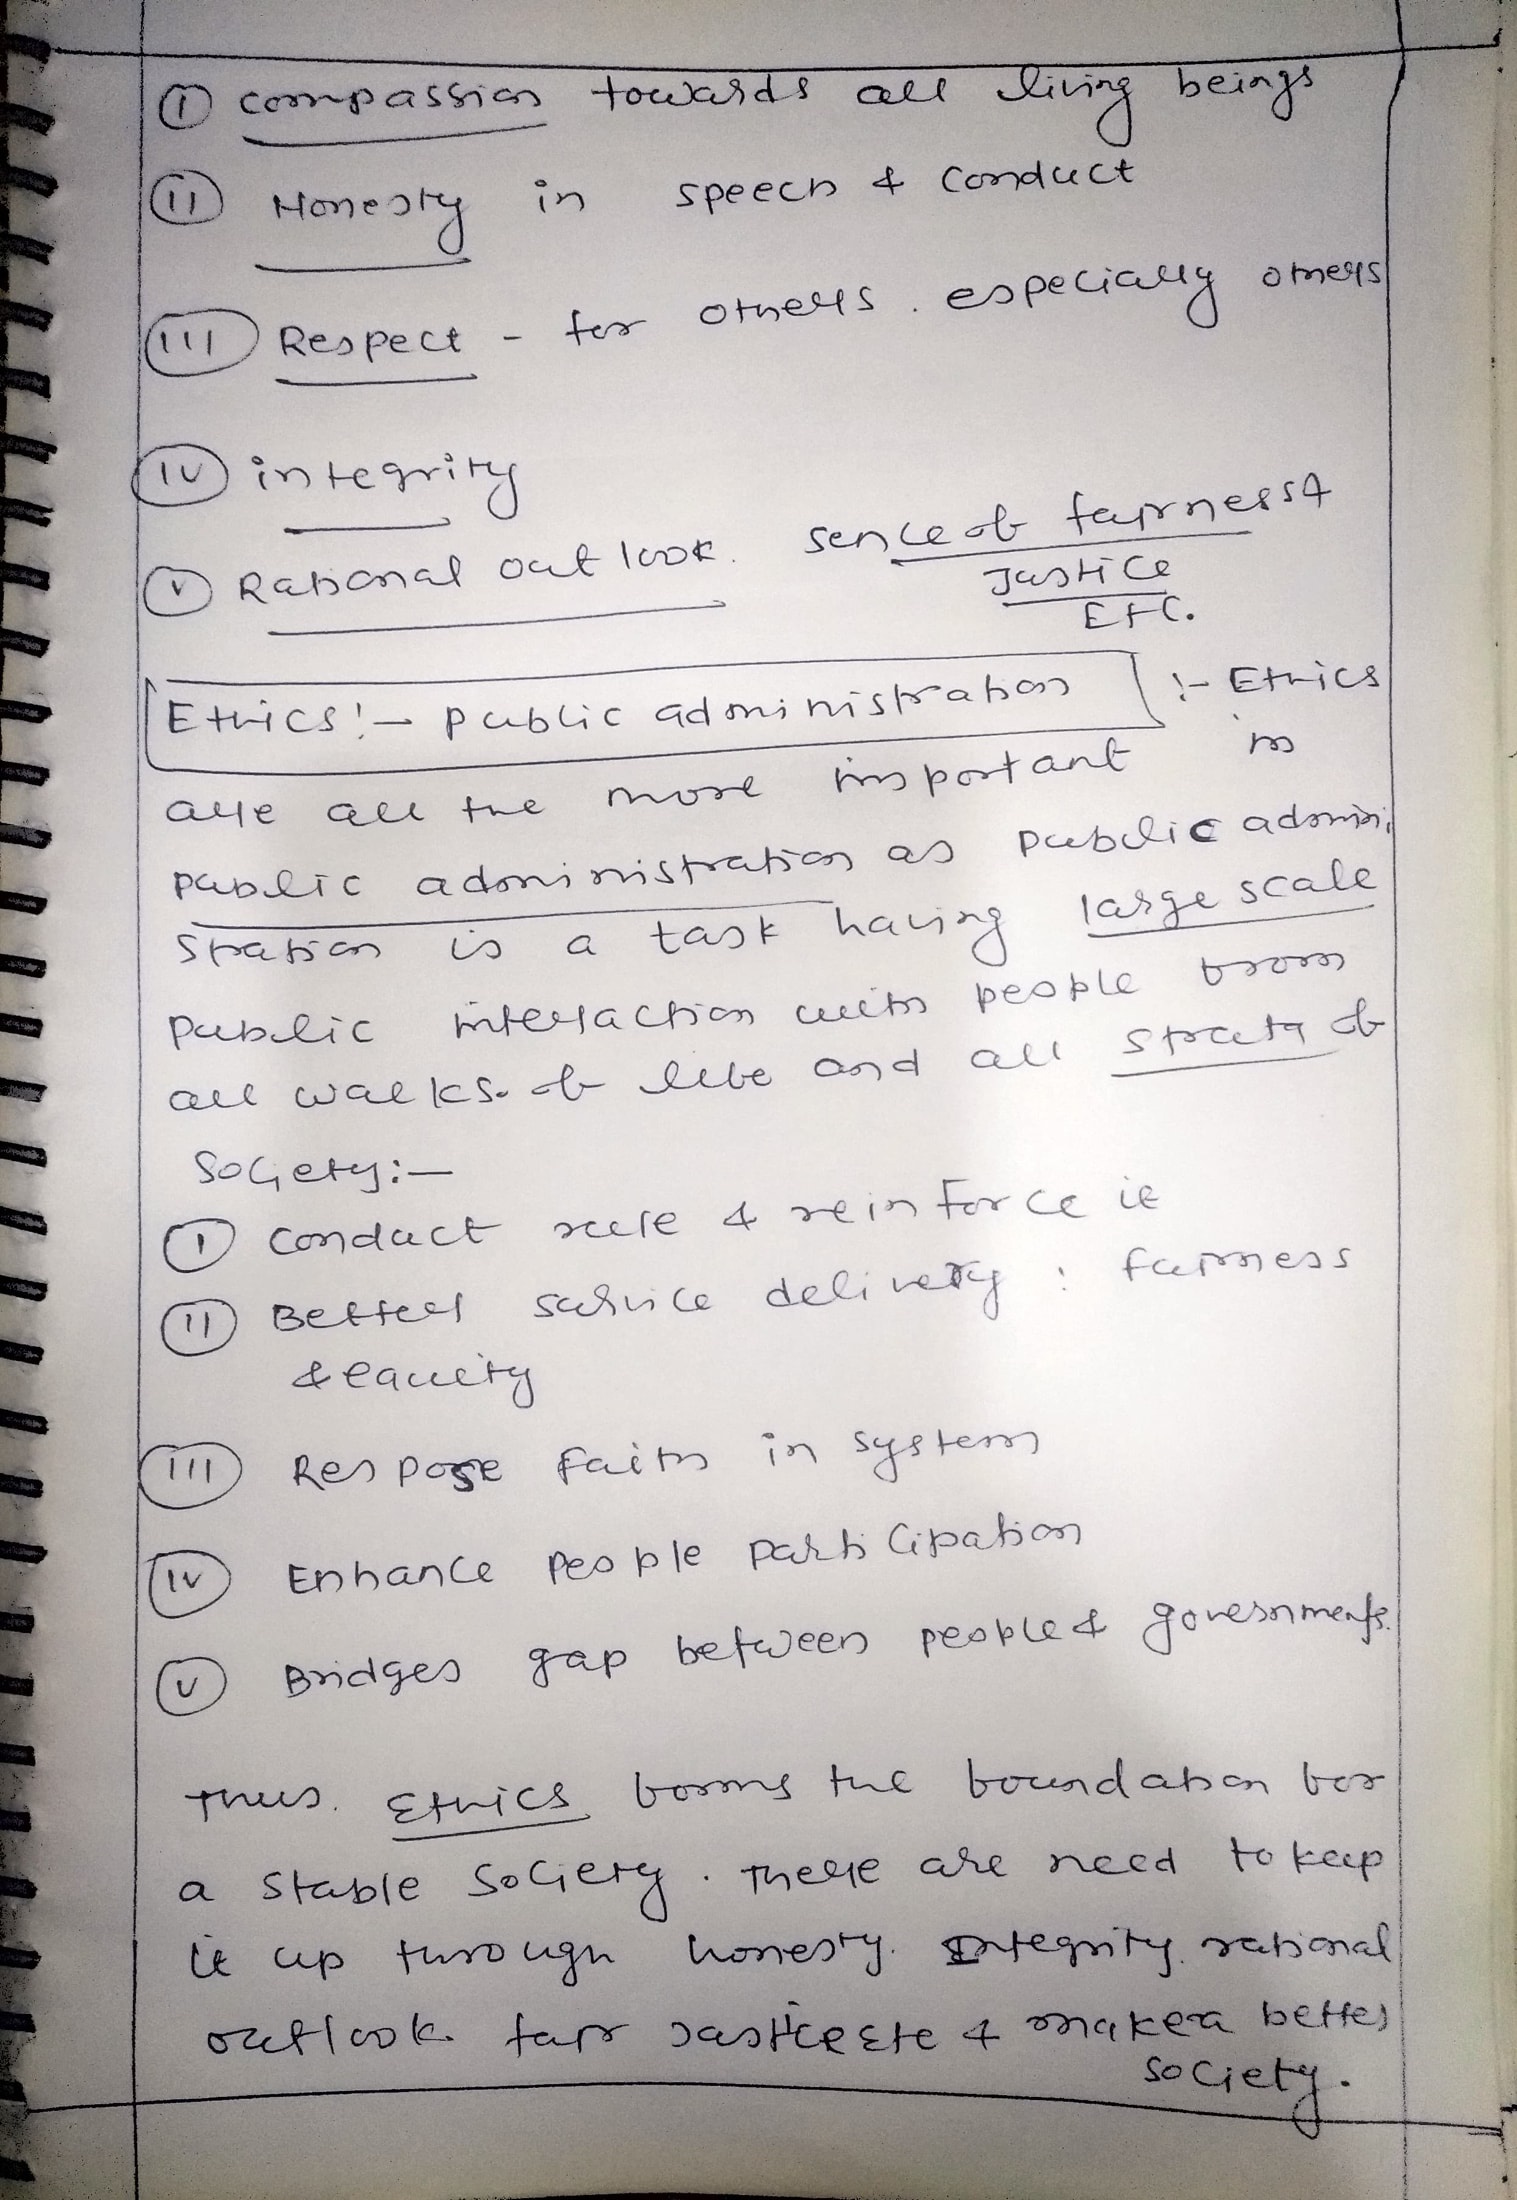 (I) compassion towards all living beings
(II) Honesty in speech & conduct
(III) Respect - for others. especially others
(IV) integrity
(V) Rational outlook. sence of fairness &
Justice
Etc.
Ethics:- public administration :- Ethics
are all the more important in
public administration as public admini
stration is a task having large scale
public interaction with people from
all walks. of life and all strata of
Society:-
(I) conduct rule & reinforce it
(II) Better service delivery : fairness
& equity
(III) Respose faith in system
(IV) Enhance people participation
(V) Bridges gap between people & governments.
Thus. Ethics forms the foundation for
a stable society. There are need to keep
it up through honesty. Integrity. rational
outlook. fair Justice Etc & make a better
society.